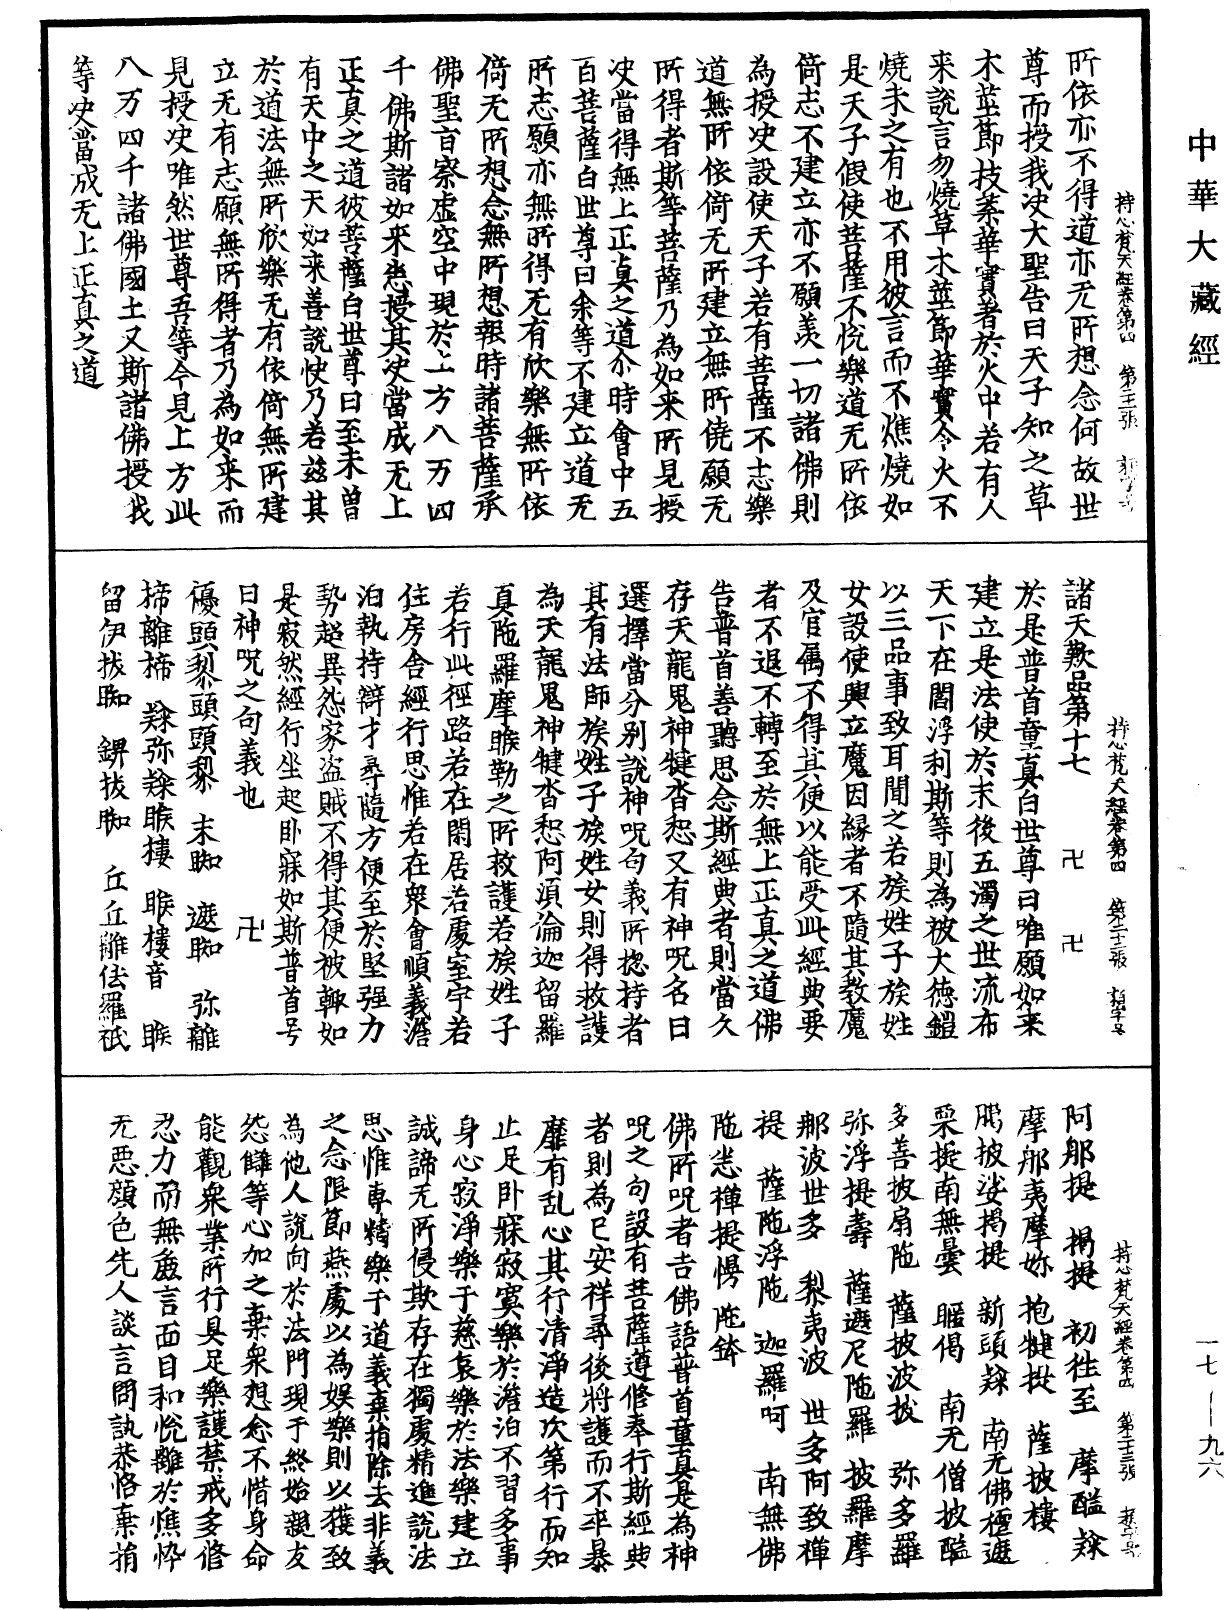 中華大藏經
持心梵天經卷第四
所依亦不得道亦无所想念何故世
尊而授我决大聖告曰天子知之草
木莖節技葉華實著於火中若有人
来說言勿燒草木莖節華實令火不
燒未之有也不用彼言而不燋燒如
是天子假使菩薩不悅樂道无所依
倚志不建立亦不願羡一切諸佛則
為授决設使天子若有菩薩不志樂
道無所依倚无所建立無所僥願无
所得者斯等菩薩乃為如来所見授
决當得無上正真之道尒時會中五
百菩薩白世尊曰余等不建立道无
所志願亦無所得无有欣樂無所依
倚无所想念無所想報時諸菩薩承
佛聖旨察虚空中現於上方八万四
千佛斯諸如来悉授其决當成无上
正真之道彼菩薩白世尊曰至未曽
有天中之天如来善說快乃若兹其
於道法無所欣樂无有依倚無所建
立无有志願無所得者乃為如来而
見授决唯然世尊吾等今見上方此
八万四千諸佛國土又斯諸佛授我
等决當成无上正真之道
持心梵天經卷第四
諸天歎品第十七 卍 卍
於是普首童真白世尊曰唯願如来
建立是法使於末後五濁之世流布
天下在閻浮利斯等則為被大德鎧
以三品事致耳聞之若族姓子族姓
女設使興立魔因緣者不隨其教魔
及官属不得其便以能受此經典要
者不退不轉至於無上正真之道佛
告普首善聽思念斯經典者則當久
存天龍鬼神犍沓惒又有神呪名曰
選擇當分别說神呪句義所揔持者
其有法師族姓子族姓女則得救護
為天龍鬼神犍沓惒阿湏倫迦留羅
真陁羅摩睺勒之所救護若族姓子
若行此徑路若在閑居若處室宇若
住房舎經行思惟若在衆會順義澹
泊執持辯才尋隨方便至於堅强力
勢超異怨家盗賊不得其便被輙如
是寂然經行坐起卧寐如斯普首号
曰神呪之句義也 卍
優頭黎頭頭黎 末𧿒 遮𧿒 弥離
摕離摕 𥹋弥𥹋睺樓 睺樓音 睺
留伊拔𧿒 錍拔𧿒 丘丘離佉羅祇
持心梵天經卷第四
阿那提 揭提 初徃至 摩醯𥹋
摩那夷摩妳 抱犍抜 薩披樓
䐶披娑揭提 新頭𥹋 南无佛檀遮
栗提南無曇 曘偈 南无僧披醯
多善披扇陁 薩披波披 弥多羅
弥浮提壽 薩遮尼陁羅 披羅摩
那波世多 梨夷波 世多阿致禪
提 薩陁浮陁 迦羅呵 南無佛
陁悲禪提愕 陁鉢
佛所呪者吉佛語普首童真是為神
呪之句設有菩薩遵修奉行斯經典
者則為已安祥尋後將護而不卒暴
靡有乱心其行清淨造次第行而知
止足卧寐寂寞樂於澹泊不習多事
身心寂淨樂于慈哀樂於法樂建立
誠諦无所侵欺存在獨處精進說法
思惟専精樂于道義棄捐除去非義
之念限節燕處以為娛樂則以獲致
為他人說向於法門現于終始親友
怨讎等心加之棄衆想念不惜身命
能觀衆業所行具足樂護禁戒多修
忍力而無麁言面目和悅離於憔悴
无惡顔色先人談言問訊恭恪棄捐
一七—九六